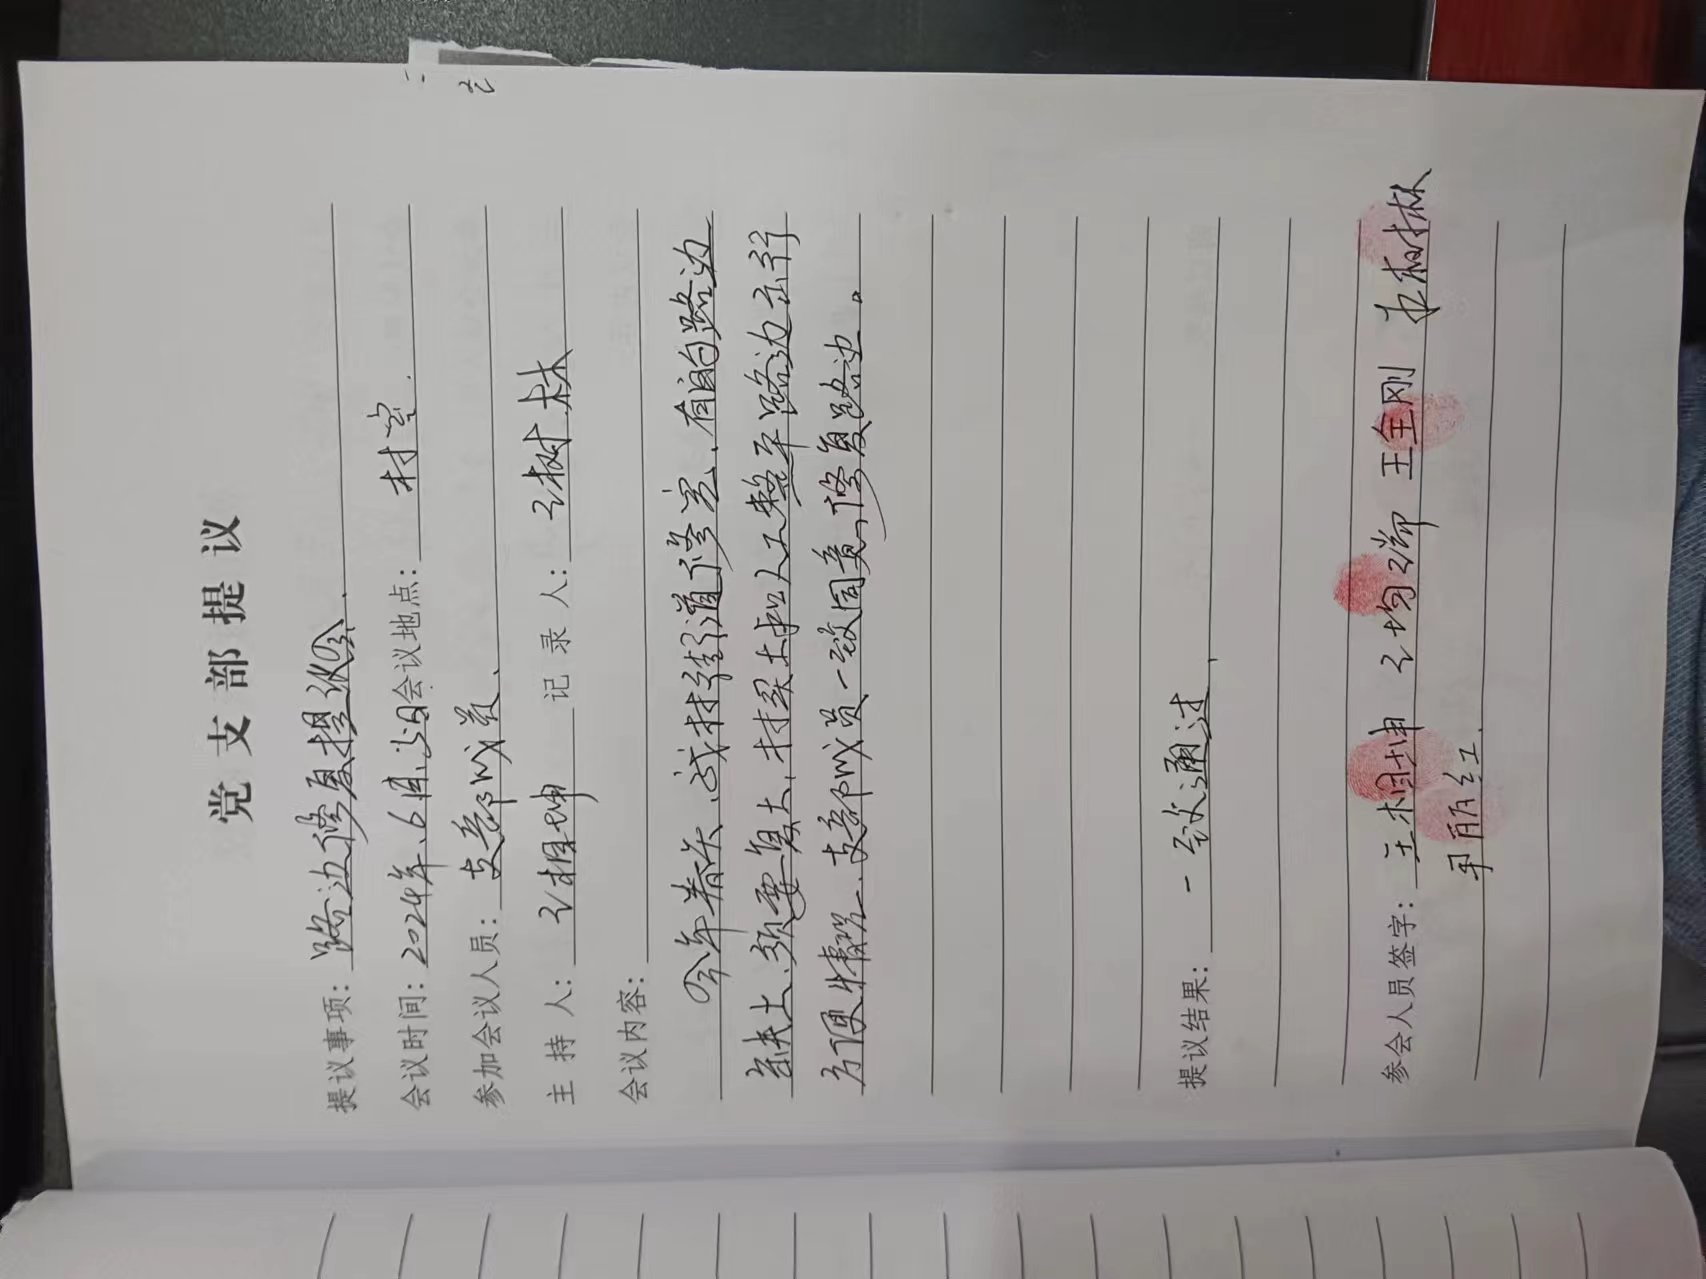 党支部提议
提议事项：路边修复提议会.
会议时间：2024年.6月. 会议地点：村室.
参加会议人员：支部成员、
主持人：王相坤 记录人：王树林
会议内容：
今年春天、我村村道修完、有的路边
缺土、须要复土、村买土和人工整平路边
方便 支部成员一致同意、修复路边。
提议结果：一致通过、
参会人员签字：王相坤 王均瑞 王全刚 王树林
丽红.